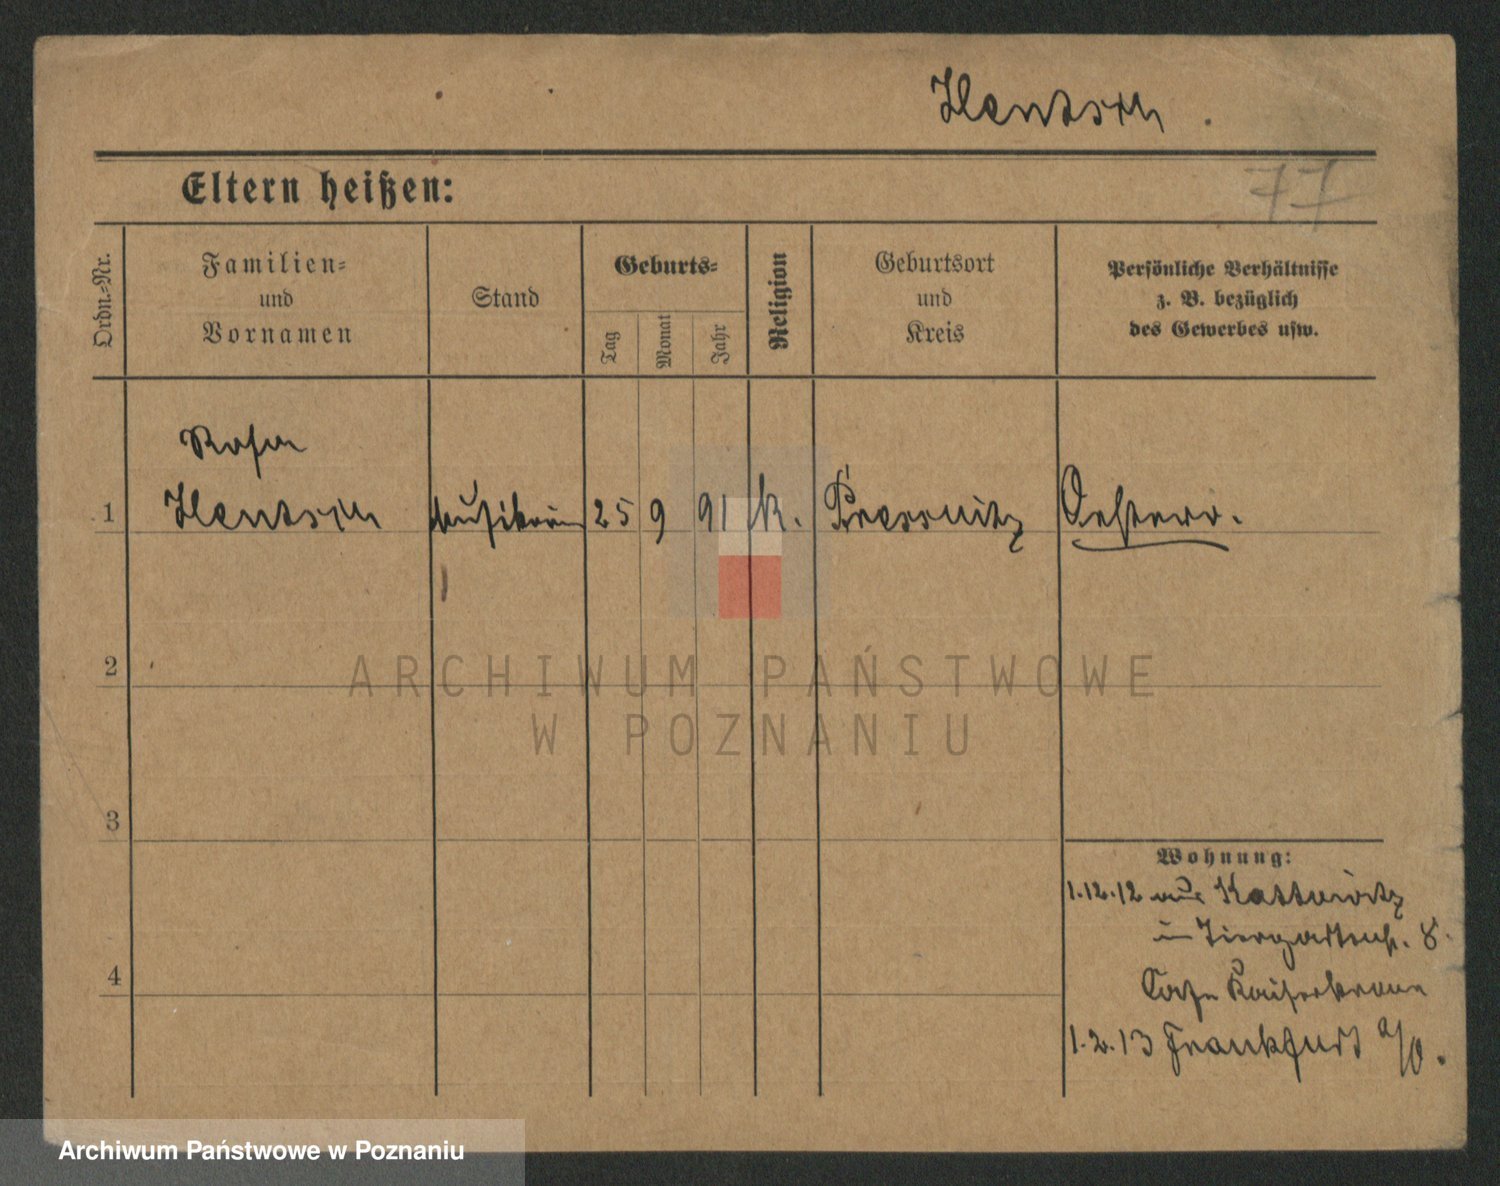 Hentsch.
Eltern heißen:
77
Ordn.=Nr.
Familien=
und
Vornamen
Stand
Geburts=
Tag
Monat
Jahr
Religion
Geburtsort
und
Kreis
Persönliche Verhältnisse
z. B. bezüglich
des Gewerbes usw.
Rosa
1 Hentsch Musikerin 25 9 91 K. Pressnitz Oesterr.
2
3
4
Wohnung:
1.12.12 aus Kattowitz
in Tiergartenstr. 8.
Cafe Kaiserkrone
1.2.13 Frankfurt a/O.
ARCHIWUM PAŃSTWOWE
W POZNANIU
Archiwum Państwowe w Poznaniu